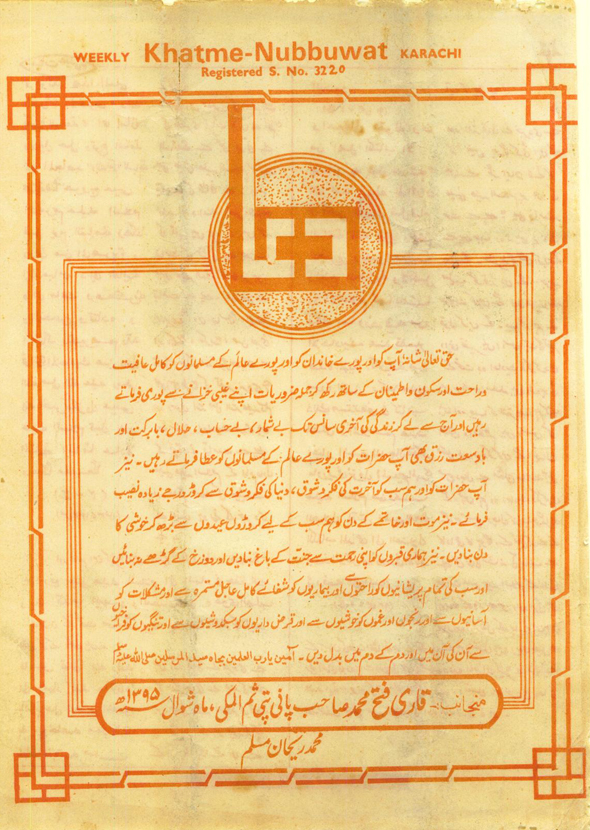 WEEKLY Khatme-Nubbuwat KARACHI
Registered S. No. 3220
دعا
حق تعالیٰ شانہٗ آپ کو اور پورے خاندان کو اور پورے عالم کے مسلمانوں کو کامل عافیت
و راحت اور سکون و اطمینان کے ساتھ رکھ کر جملہ ضروریات اپنے غیبی خزانے سے پوری فرماتے
رہیں اور آج سے لے کر زندگی کی آخری سانس تک بے شمار، بے حساب، حلال، بابرکت اور
باوسعت رزق بھی آپ حضرات کو اور پورے عالم کے مسلمانوں کو عطا فرماتے رہیں۔ نیز
آپ حضرات کو اور ہم سب کو آخرت کی فکر و شوق، دنیا کی فکر و شوق سے کروڑ درجے زیادہ نصیب
فرمائے۔ نیز موت اور خاتمے کے دن کو ہم سب کے لیے کروڑوں عیدوں سے بڑھ کر خوشی کا
دن بنادیں۔ نیز ہماری قبروں کو اپنی رحمت سے جنت کے باغ بنادیں اور دوزخ کے گڑھے نہ بنائیں
اور سب کی تمام پریشانیوں کو راحتوں سے اور بیماریوں کو شفائے کامل عاجل مستمرہ سے اور مشکلات کو
آسانیوں سے اور رنجوں اور غموں کو خوشیوں سے اور قرض داریوں کو سبکدوشیوں سے اور تنگیوں کو فراخیوں
سے آن کی آن میں اور دم کے دم میں بدل دیں۔ آمین یارب العلمین بجاہ سید المرسلین صلی اللہ علیہ وسلم
منجانب:۔ قاری فتح محمد صاحب پانی پتی ثم المکی، ماہ شوال ۱۳۹۵ھ
محمد ریحان مسلم